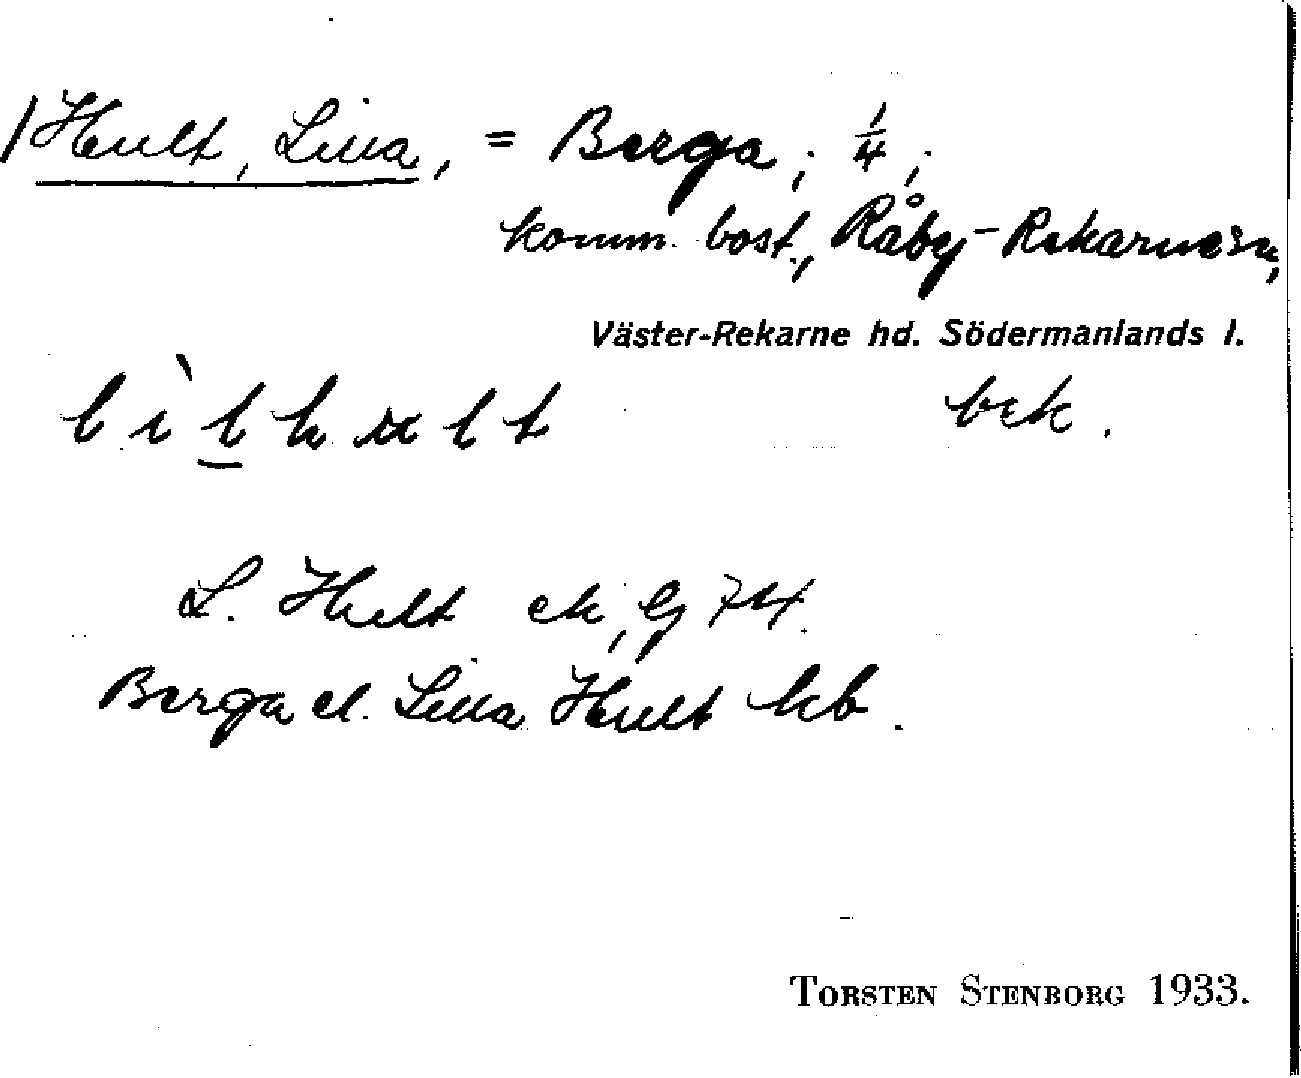 Hult, Lilla, = Berga; 1/4;
komm. bost., Råby-Rekarne sn,
Väster-Rekarne hd. Södermanlands l.
lìlhult bek.
L. Hult ek, Gj 74.
Berga el. Lilla Hult kb.
TORSTEN STENBORG 1933.